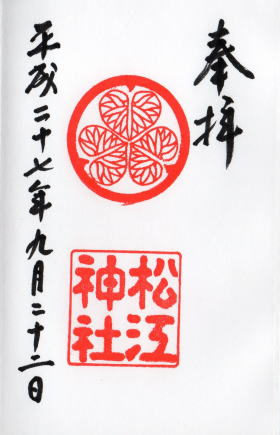 奉拝
松江
神社
平成二十七年九月二十二日